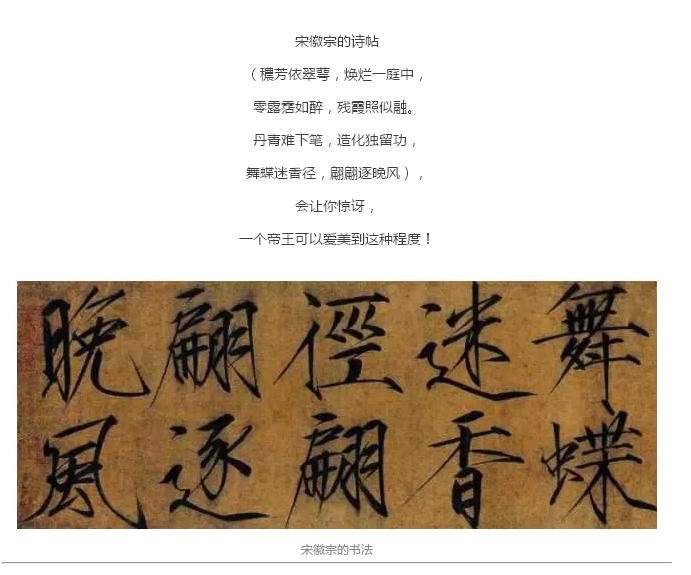 宋徽宗的诗帖
（穠芳依翠萼，焕烂一庭中，
零露霑如醉，残霞照似融。
丹青难下笔，造化独留功，
舞蝶迷香径，翩翩逐晚风），
会让你惊讶，
一个帝王可以爱美到这种程度！
舞蝶
迷香
徑翩
翩逐
晚風
宋徽宗的书法